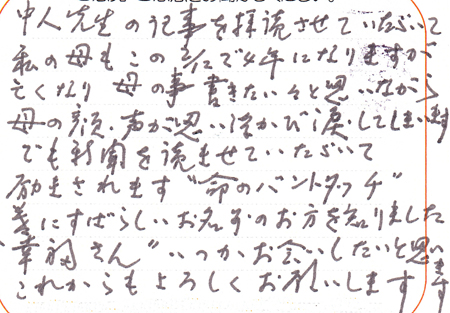 中人先生の記事を拝読させていただいて
私の母もこの でウ年になりますが
亡くなり 母の事 書きたい々と思いながら
母の顔、声が思い浮かび涙してしまいます
でも新聞を読ませていただいて
励まされます"命のバトンタッチ"
にすばらしいお名前のお方を知りました
"幸福さん"いつかお会いしたいと思います
これからもよろしくお願いします